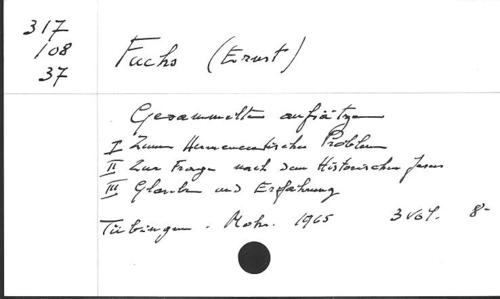 317
108
37
Fuchs (Ernst)
Gesammelten aufsätzen
I Zum Hermeneutischen Problem
II Zur Frage nach dem Historischen Jesus
III Glauben und Erfahrung
Tübingen. Mohr. 1965 3 vol. 8-